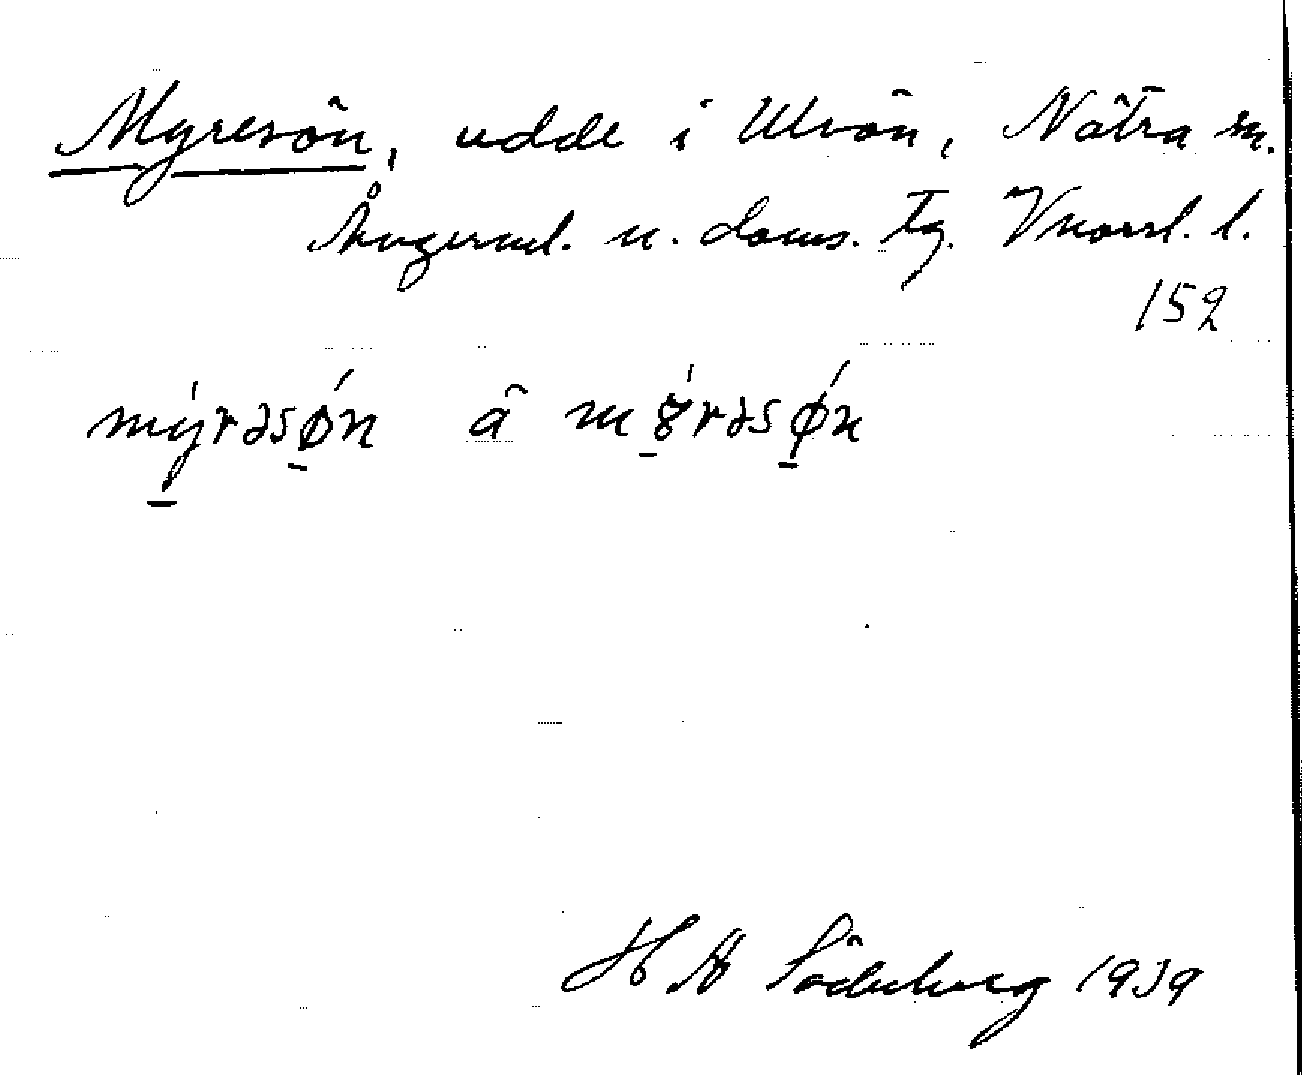 Myresön, udde i Ulvön, Nätra sn.
Ångerml. n. doms. tg. Vnorrl. l.
152
mýrəsǿn å mýrəsǿn
H A Söderberg 1939